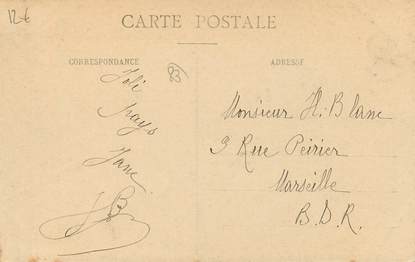 12-6
CARTE POSTALE
CORRESPONDANCE
ADRESSE
83
Joli
pays
Jane
JB
Monsieur H. Blanc
9 Rue Peirier
Marseille
B.D.R.